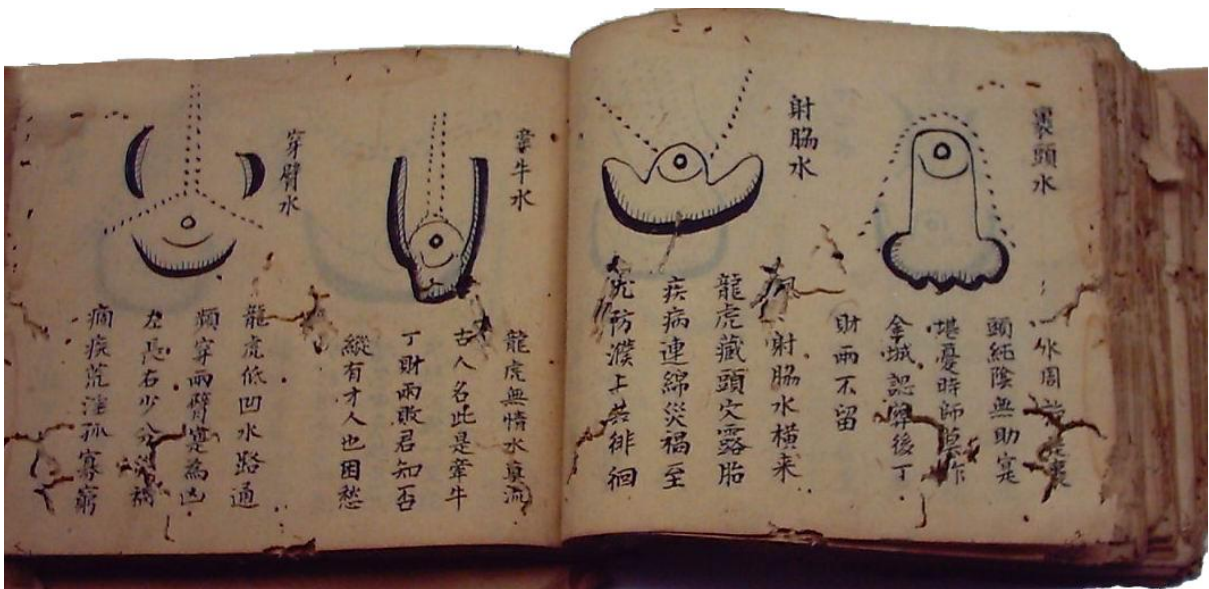 裹頭水
一水周裹
頭純陰無助寔
堪憂時師莫作
金城認葬後丁
財兩不留
射脇水
射脇水橫来
龍虎藏頭穴露胎
疾病連綿災禍至
尤防濮上共徘徊
牽牛水
龍虎無情水直流
古人名此是牽牛
丁財兩敗君知否
縱有才人也困愁
穿臂水
龍虎低凹水路通
頻穿兩臂寔為凶
左長右少分禍
痼疾荒淫孤寡窮